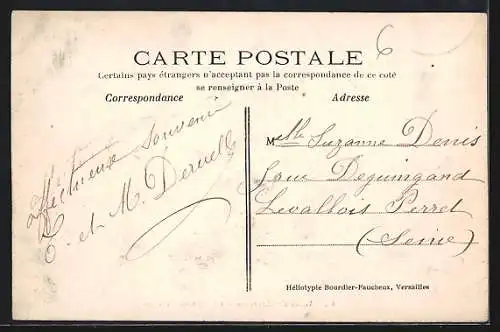 6
CARTE POSTALE
Certains pays étrangers n'acceptent pas la correspondance de ce côté
se renseigner à la Poste
Correspondance
Affectueux Souvenir
C. et M. Dervelle
Adresse
Melle Suzanne Denis
5 rue Deguingand
Levallois Perret
(Seine)
Héliotypie Bourdier-Faucheux, Versailles